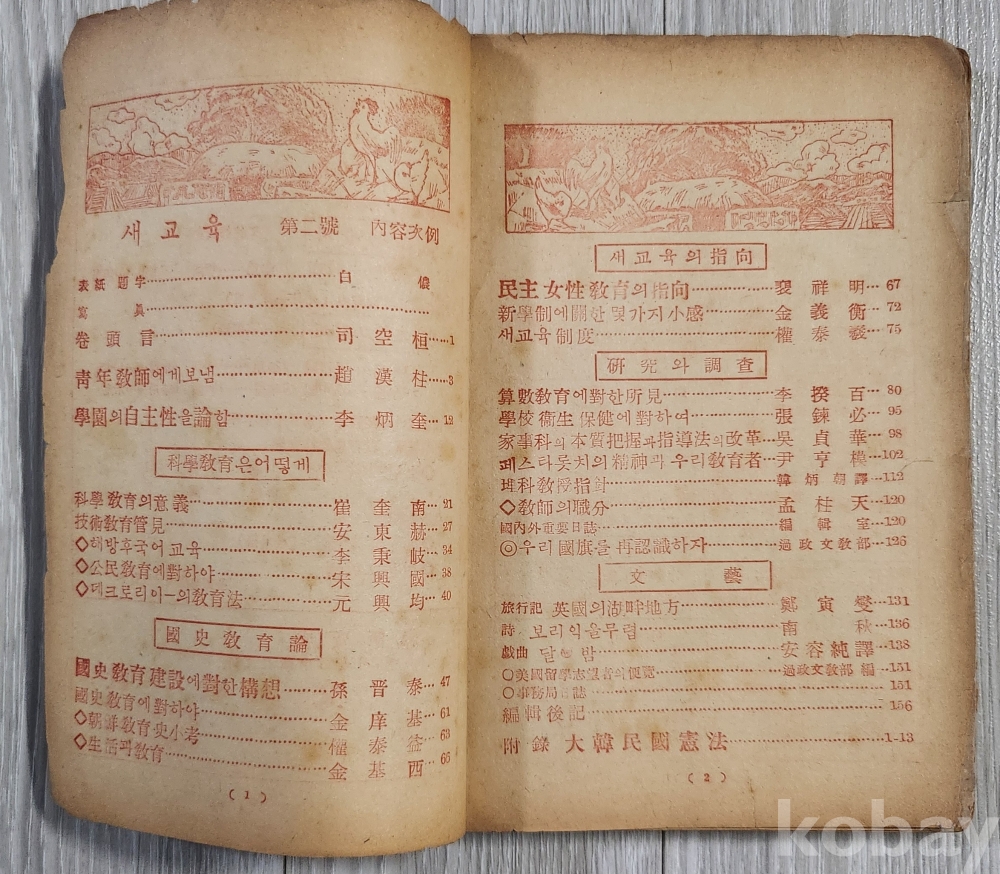 새교육 第二號 內容次例
表紙題字 白 儂
寫 眞
卷頭言 司空桓 1
靑年敎師에게보냄 趙漢柱 3
學園의自主性을論함 李炳奎 19
科學敎育은어떻게
科學敎育의意義 崔奎南 21
技術敎育管見 安東赫 27
◇해방후국어교육 李秉岐 34
◇公民敎育에對하야 宋興國 38
◇데크로리이—의敎育法 元興均 40
國史敎育論
國史敎育建設에對한構想 孫晋泰 47
國史敎育에對하야 金庠基 61
◇朝鮮敎育史小考 權泰益 63
◇生活과敎育 金基西 65
(1)
새교육의指向
民主女性敎育의指向 裵祥明 67
新學制에關한몇가지小感 金義衡 72
새교육制度 權泰 75
硏究와調査
算數敎育에對한所見 李揆百 80
學校衞生保健에對하여 張鍊必 95
家事科의本質把握과指導法의改革 吳貞華 98
페스타롯치의精神과우리敎育者 尹亨模 102
科敎授指針 韓炳朝譯 112
◇敎師의職分 孟柱天 120
國內外重要日誌 編輯室 120
◎우리國旗를再認識하자 過政文敎部 126
文藝
旅行記 英國의湖畔地方 鄭寅燮 131
詩 보리익을무렵 南秋 136
戱曲 달밤 安容純譯 138
○美國留學志望者의便覽 過政文敎部編 151
○事務局日誌 151
編輯後記 156
附錄 大韓民國憲法 1-13
(2)
kobay